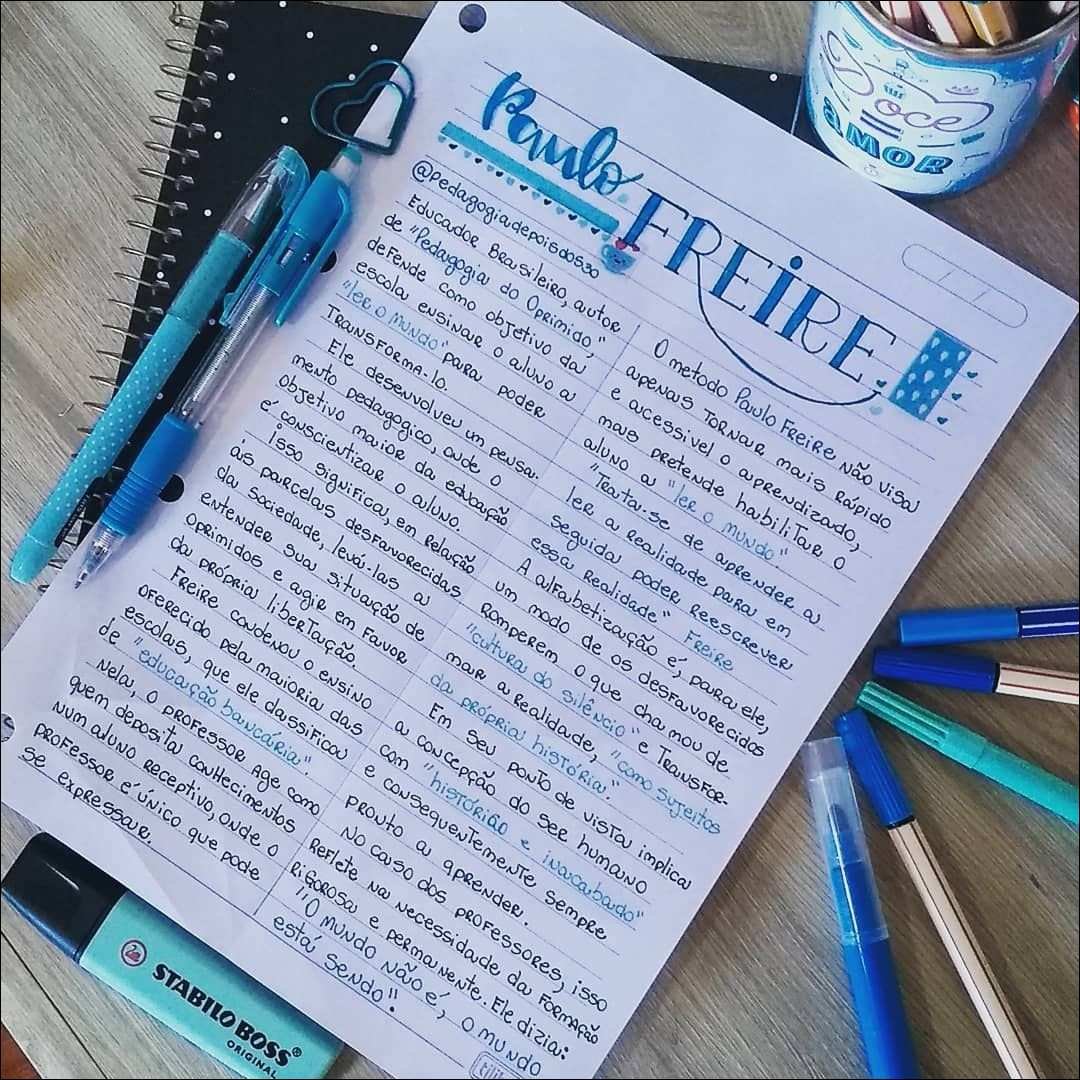 Paulo FREIRE
@pedagogiadepoisdos30
Educador Brasileiro, autor
de "Pedagogia do Oprimido,"
defende como objetivo da
escola ensinar o aluno a
"ler o mundo" para poder
Transforma-lo.
Ele desenvolveu um pensa-
mento pedagogico, onde o
objetivo maior da educação
é conscientizar o aluno.
Isso significa, em relação
às parcelas desfavorecidas
da sociedade, levá-las a
entender sua situação de
oprimidos e agir em favor
da própria libertação.
Freire condenou o ensino
oferecido pela maioria das
escolas, que ele classificou
de "educação bancária".
Nela, o professor age como
quem deposita conhecimentos
num aluno receptivo, onde o
professor é único que pode
se expressar.
O metodo Paulo Freire não visa
apenas tornar mais rápido
e accessivel o aprendizado,
mais pretende habilitar o
aluno a "ler o mundo".
"Trata-se de aprender a
ler a realidade para em
seguida poder reescrever
essa realidade" Freire
A alfabetização é, para ele,
um modo de os desfavorecidos
romperem o que chamou de
"cultura do silêncio" e transfor-
mar a realidade, "como sujeitos
da própria história".
Em seu ponto de vista implica
a concepção do ser humano
com "historião e inacabado"
e consequentemente sempre
pronto a aprender.
No caso dos professores, isso
reflete na necessidade da formação
rigorosa e permanente. Ele dizia:
"O mundo não é, o mundo
está sendo".
Doce
AMOR
STABILO BOSS®
ORIGINAL